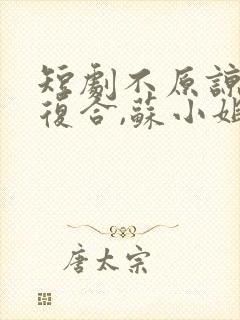 短劇不原諒
復合,蘇小姐
唐太宗